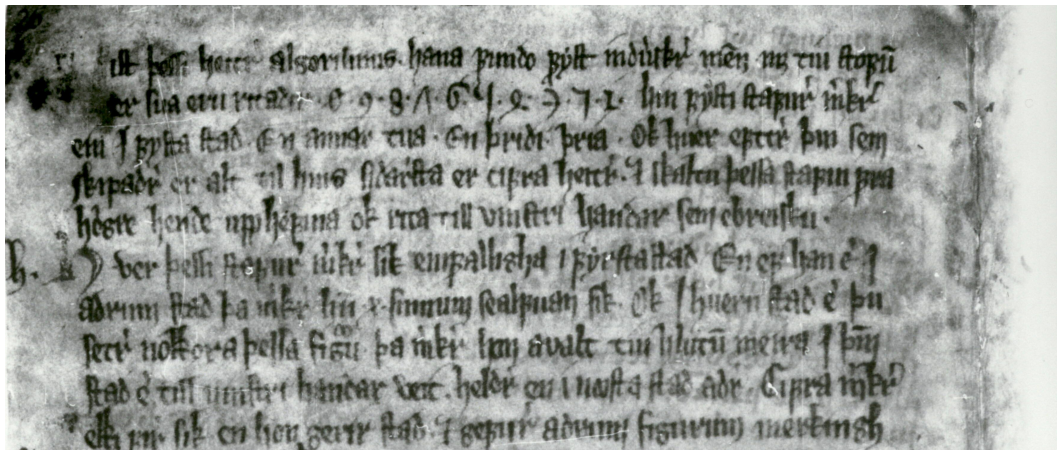 ist þessi heitir algorismus. hana fundo fyst indv̾skr̾ men̅ m; tiu stofu̅
er sua eru ritader. 0. 9. 8. 7. 6. 5. 4. 3. 2. 1. hin fysti stafur̾ m̾kr̾
ein j fysta stad. En annar tua. En þridi þria. Ok huer eftir̾ þui sem
skipadr̾ er alt til hins sidarsta er cifra heitir̾. skaltu þessa stafui fra
hògre hende upphefuia ok rita till vinstri handar sem ebreisku.
h. ver þessi stafur̾ m̾kr̾ sik einfalliglid i fyrsta stad En ef han e̾ j
adrum stad þa m̾kr̾ hn x. sinnum sealfuan sik. Ok j huern stad e̾ þu
setr̾ nokkora þessa figu þa m̾kr̾ hn avalt tiu hlutu̅ meira j þm̅
stad e̾ till vinstri handar veit. heldr̾ en i næsta stad adr. Cifra m̾kr̾
ekki fir̾ sik en hon gerir stad. gefur̾ adrum figurum merkingh